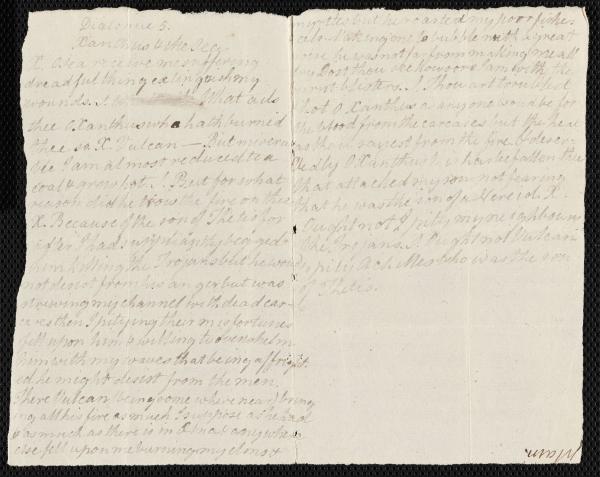 Dialogue 5.
Xanthus & the Sea
X. O Sea receive me suffering
dreadful things extinguish my
wounds. S. What ails
thee O Xanthus who hath burned
thee so X. Vulcan — But misera
ble I am almost reduced to a
coal & grow hot. S. But for what
reason did he throw the fire on thee
X. Because of the son of Thetis for
after I had supplicantly begged
him killing the Trojans but he would
not desist from his anger but was
strewing my channel with dead car-
cases then I pitying their misfortunes
fell upon him willing to overwhelm
him with my waves that being affright
ed he might desist from the men.
There Vulcan being some where near bring
ing all his fire as much I suppose as he had
& as much as there is in Etna & any where
else fell upon me burning my elms &
myrtles but he roasted my poor fishes
making me to bubble with a great
noise he was not far from making me all
dry Dost thou see how sore I am with the
burnt blisters. S. Thou art troubled &
hot O Xanthus as any one would be for
the blood from the carcases but the heat
as thou sayest from the fire, & deser-
vedly O Xanthus it has befallen thee
that attacked my son not fearing
that he was the son of a Nereid. X.
Ought not I pity my neighbours
the Trojans. S. Ought not Vulcan
pity Achilles who was the son
of Thetis.